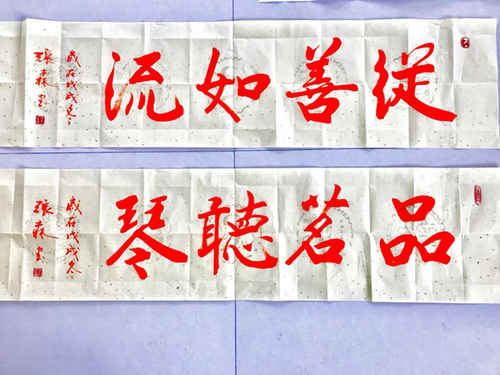 從善如流
歲在戊戌冬
張森書
品茗聽琴
歲在戊戌冬
張森書